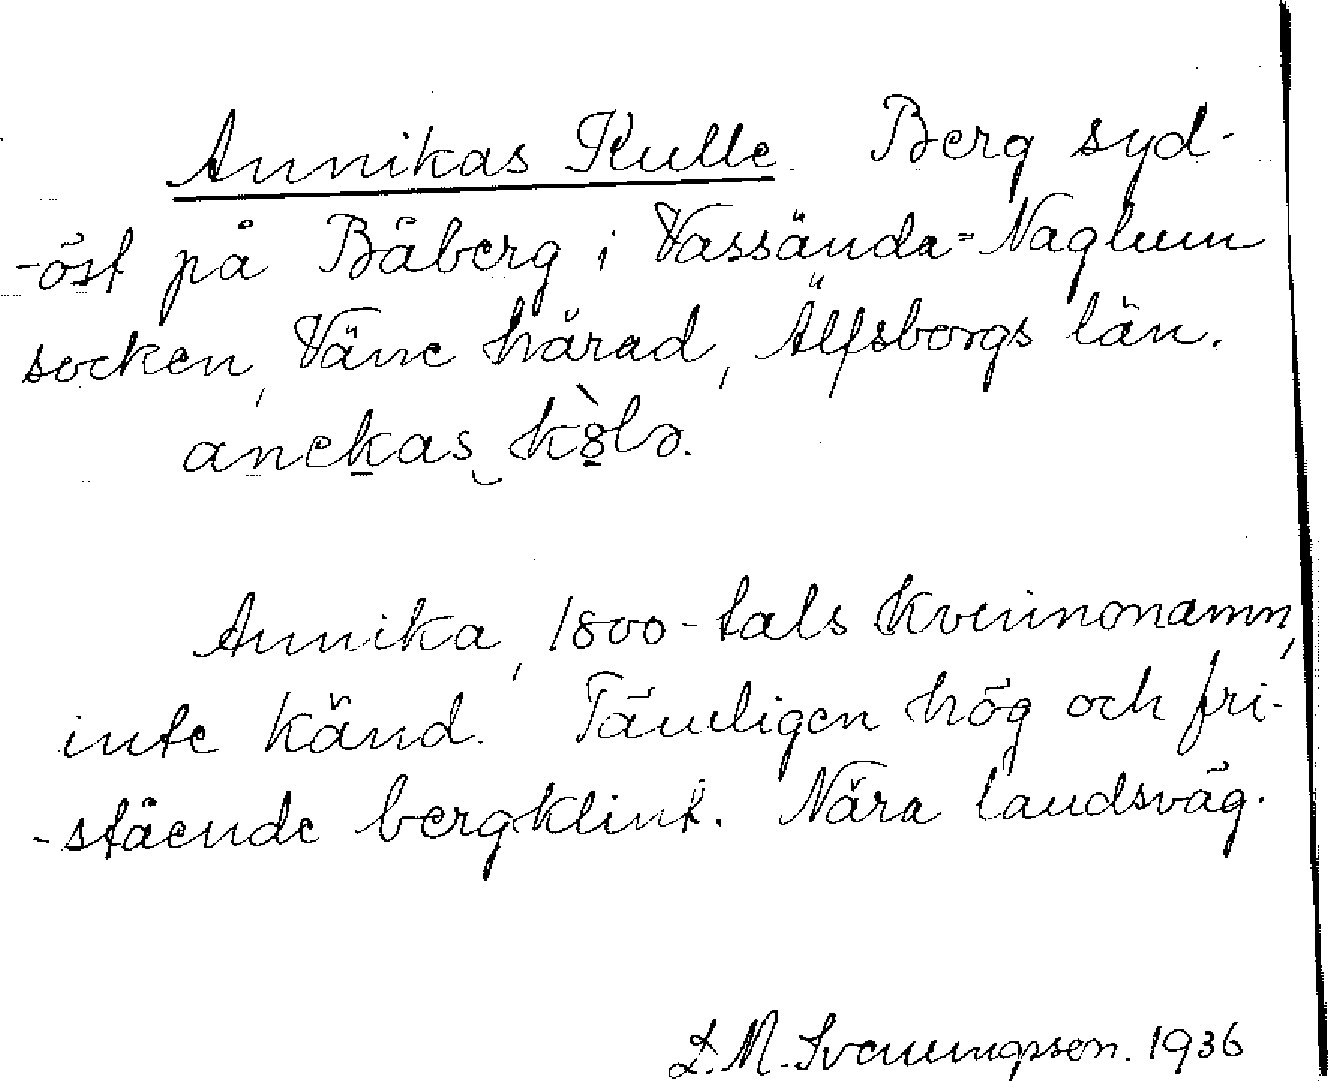 Annikas Kulle Berg syd-
-öst på Båberg i Vassända=Naglum
socken, Väne härad, Älfsborgs län.
anekas kòlə.
Annika, 1800-tals kvinnonamn,
inte känd. Tämligen hög och fri-
-stående bergklint. Nära landsväg.
D.M. Svenungsson. 1936